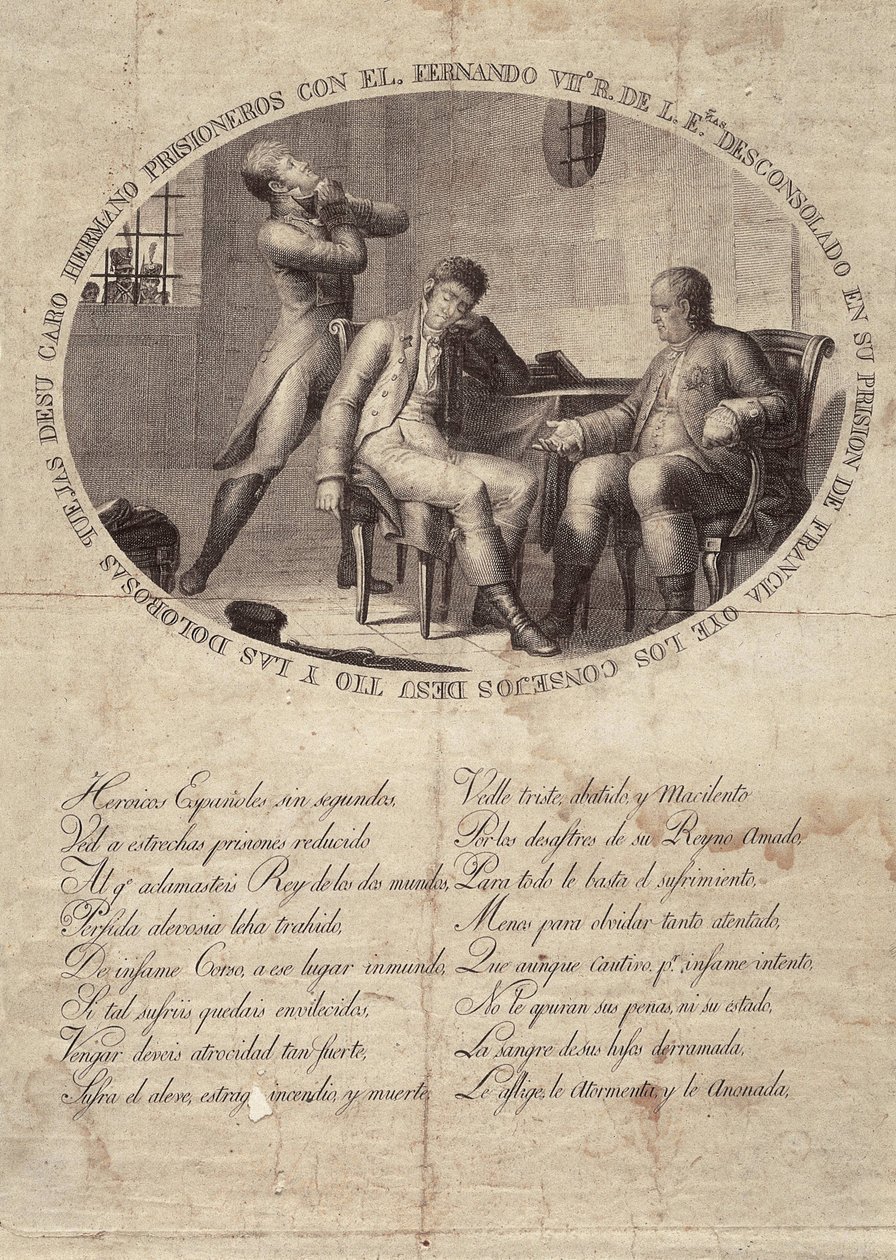 FERNANDO VII.º R. DE L. E.ñas DESCONSOLADO EN SU PRISION DE FRANCIA OYE LOS CONSEJOS DESU TIO Y LAS DOLOROSAS QUEJAS DESU CARO HERMANO PRISIONEROS CON EL.
Heroicos Españoles sin segundos,
Ved a estrechas prisiones reducido
Al q.e aclamasteis Rey de los dos mundos,
Perfida alevosia leha trahido,
De infame Corso, a ese lugar inmundo,
Si tal sufriis quedais envilecidos,
Vengar deveis atrocidad tan fuerte,
Sufra el aleve, estrag incendio, y muerte.
Vedle triste, abatido, y Macilento
Por los desastres de su Reyno Amado,
Para todo le basta el sufrimiento,
Menos para olvidar tanto atentado,
Que aunque Cautivo, p.r infame intento,
No le apuran sus penas, ni su estado,
La sangre desus hijos derramada,
Le aflige, le Atormenta, y le Anonada,